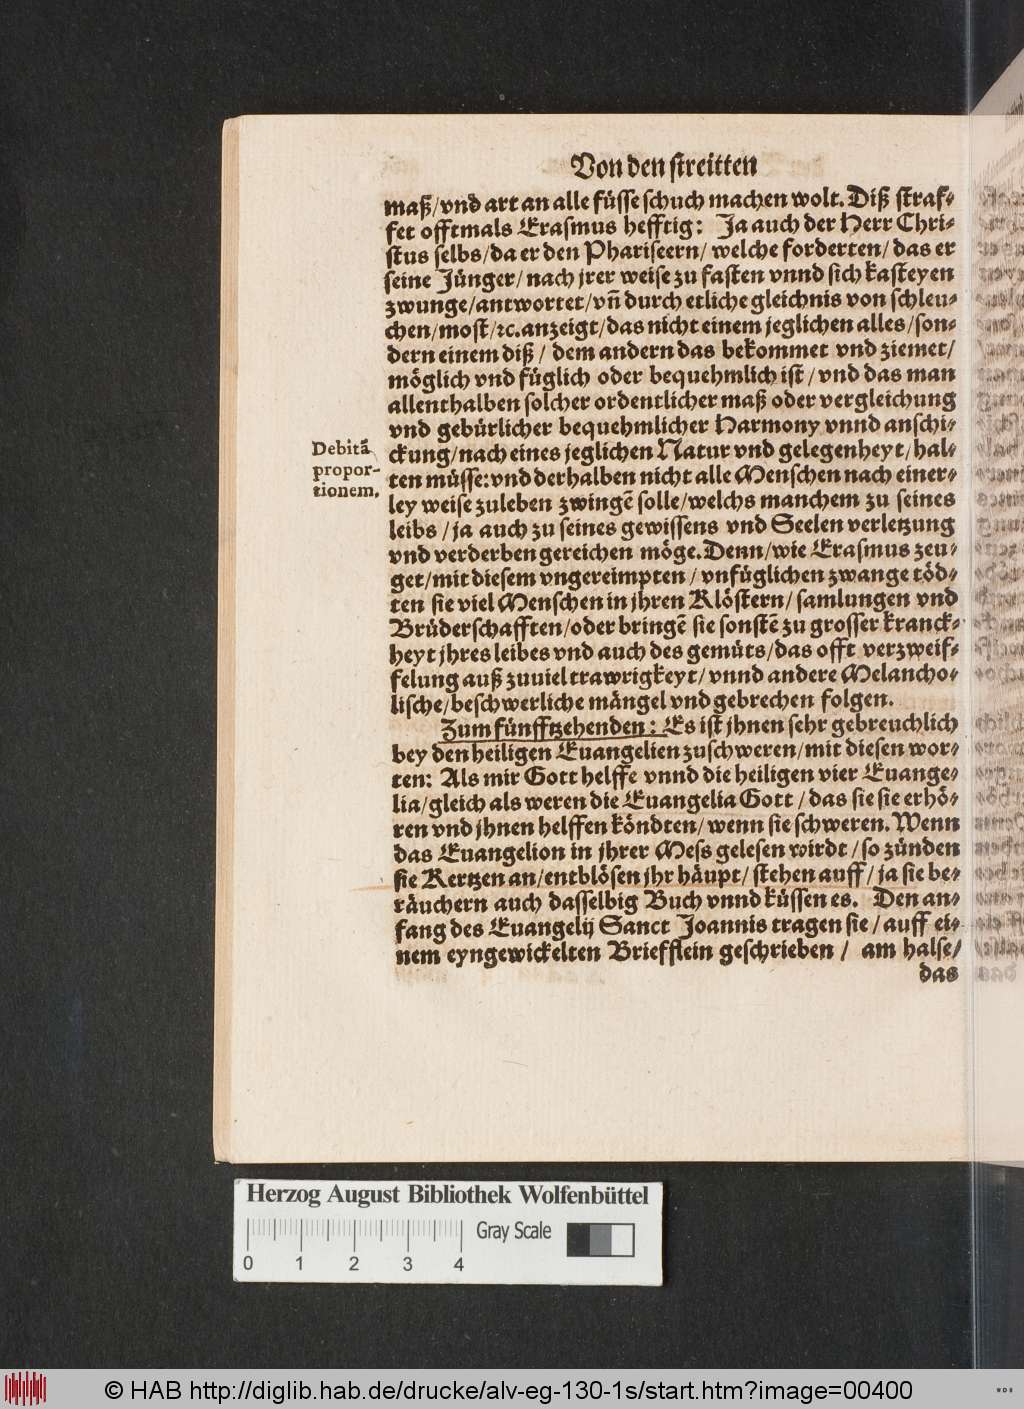 Von den ſtreitten
maß/vnd art an alle füſſe ſchuch machen wolt. Diß ſtraf⸗
fet offtmals Eraſmus hefftig: Ja auch der Herr Chri⸗
ſtus ſelbs/da er den Phariſeern/ welche forderten/ das er
ſeine Jünger/ nach jrer weiſe zu faſten vnnd ſich kaſteyen
zwunge/antwortet/vn̄ durch etliche gleichnis von ſchleu⸗
chen/moſt/ꝛc. anzeigt/das nicht einem jeglichen alles/ſon⸗
dern einem diß / dem andern das bekommet vnd ziemet/
möglich vnd füglich oder bequehmlich iſt / vnd das man
allenthalben ſolcher ordentlicher maß oder vergleichung
vnd gebürlicher bequehmlicher Harmony vnnd anſchi⸗
ckung/nach eines jeglichen Natur vnd gelegenheyt/hal⸗
ten müſſe: vnd derhalben nicht alle Menſchen nach einer⸗
ley weiſe zuleben zwingē ſolle/welchs manchem zu ſeines
leibs / ja auch zu ſeines gewiſſens vnd Seelen verletzung
vnd verderben gereichen möge. Denn/wie Eraſmus zeu⸗
get/mit dieſem vngereimpten / vnfüglichen zwange töd⸗
ten ſie viel Menſchen in jhren Klöſtern/ ſamlungen vnd
Brüderſchafften/oder bringē ſie ſonſtē zu groſſer kranck⸗
heyt jhres leibes vnd auch des gemüts/das offt verzweif⸗
felung auß zuuiel trawrigkeyt/ vnnd andere Melancho⸗
liſche/beſchwerliche mängel vnd gebrechen folgen.
Zum fünfftzehenden: Es iſt jhnen ſehr gebreuchlich
bey den heiligen Euangelien zuſchweren/mit dieſen wor⸗
ten: Als mir Gott helffe vnnd die heiligen vier Euange⸗
lia/gleich als weren die Euangelia Gott / das ſie ſie erhö⸗
ren vnd jhnen helffen köndten/ wenn ſie ſchweren. Wenn
das Euangelion in jhrer Meſs geleſen wirdt / ſo zünden
ſie Kertzen an/entblöſen jhr häupt/ ſtehen auff / ja ſie be⸗
räuchern auch daſſelbig Buch vnnd küſſen es. Den an⸗
fang des Euangelij Sanct Joannis tragen ſie / auff ei⸗
nem eyngewickelten Briefflein geſchrieben / am halſe/
das
Debitā
propor-
tionem.
Herzog August Bibliothek Wolfenbüttel
Gray Scale
0 1 2 3 4
© HAB http://diglib.hab.de/drucke/alv-eg-130-1s/start.htm?image=00400